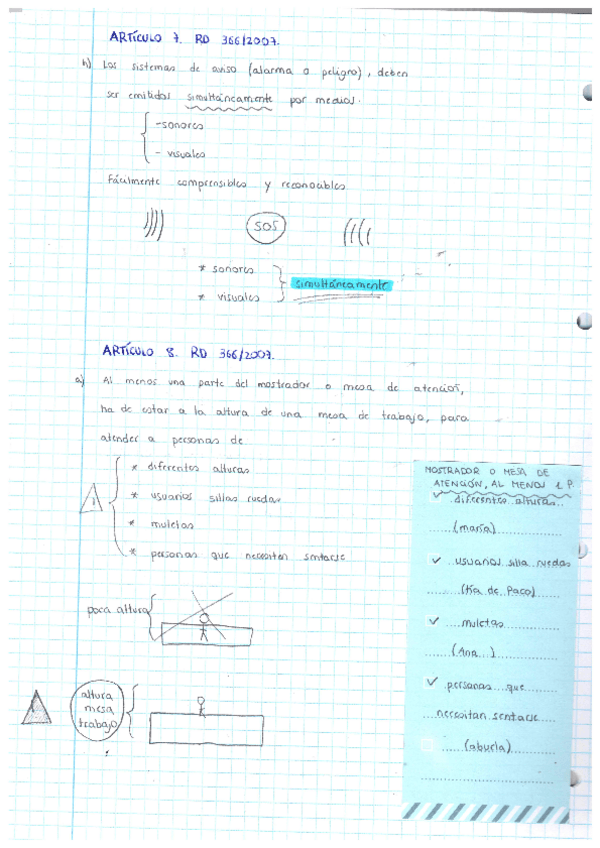 ARTÍCULO 7. RD 366/2007.
h) Los sistemas de aviso (alarma o peligro), deben
ser emitidos simultáneamente por medios.
- sonoros
- visuales
Fácilmente comprensibles y reconocibles
SOS
* sonoros
simultáneamente
* visuales
ARTÍCULO 8. RD 366/2007.
a) Al menos una parte del mostrador o mesa de atención,
ha de estar a la altura de una mesa de trabajo, para
atender a personas de
* diferentes alturas
* usuarios sillas ruedas
* muletas
* personas que necesiten sentarse
poca altura
altura
mesa
trabajo
!
MOSTRADOR O MESA DE
ATENCIÓN, AL MENOS 1 P.
✓ diferentes alturas
(maría)
✓ usuarios silla ruedas
(tía de Paco)
✓ muletas
(Ana...)
✓ personas que
necesitan sentarse
(abuela)